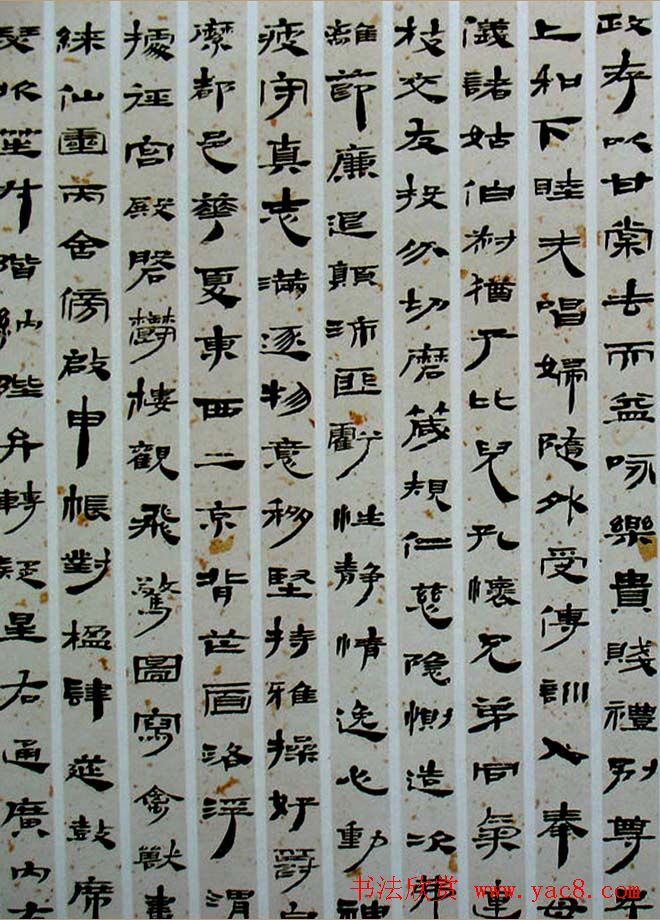 政存以甘棠去而益咏樂貴賤禮别尊卑
上和下睦夫唱婦隨外受傅訓入奉母
儀諸姑伯叔猶子比兒孔懷兄弟同氣連
枝交友投分切磨箴規仁慈隱惻造次弗
離節廉退顛沛匪虧性靜情逸心動神
疲守真志滿逐物意移堅持雅操好爵自
縻都邑華夏東西二京背芒面洛浮渭
據涇宮殿磐鬱樓觀飛驚圖寫禽獸畫
綵仙靈丙舍傍啟申帳對楹肆筵鼓席
瑟吹笙升階納陛弁轉疑星右通廣內左
书法欣赏 www.yac8.com